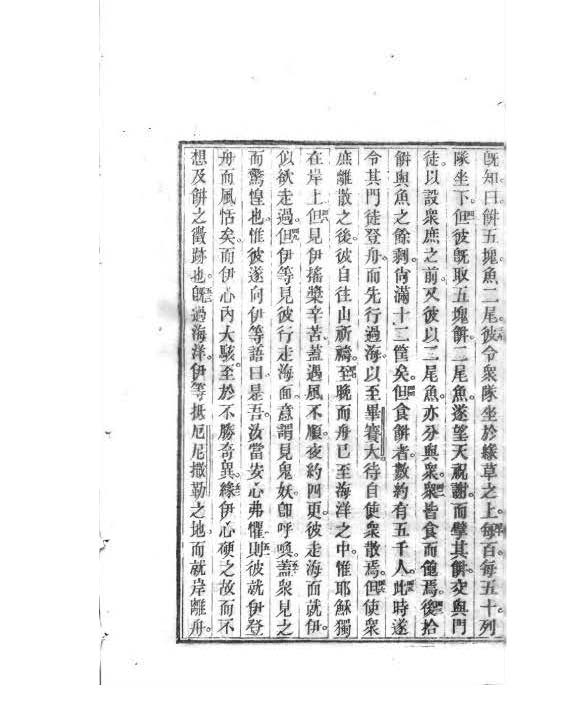 既知曰餠五塊魚二尾。彼令衆隊坐於綠草之上。每百每五十列
隊坐下。但彼既取五塊餠。二尾魚。遂望天祝謝。而擘其餠。交與門
徒以設衆庶之前。又彼以二尾魚。亦分與衆。衆皆食而飽焉。後拾
餠與魚之餘剩。尙滿十二筐矣。但食餠者。數約有五千人。此時遂
令其門徒登舟。而先行過海。以至畢賽大。待自使衆散焉。但使衆
庶離散之後。彼自往山祈禱。至晚而舟已至海洋之中。惟耶穌獨
在岸上。但見伊等搖槳辛苦。蓋遇風不順。夜約四更。彼走海而就伊。
似欲走過。但伊等見彼行走海面。意謂見鬼妖。卽呼喚。蓋衆見之
而驚惶也。惟彼遂向伊等語曰。是吾。汝當安心弗懼。則彼就伊登
舟而風恬矣。而伊心內大駭。至於不勝奇異。緣伊心硬之故。而不
想及餠之徵跡也。既過海洋。伊等抵厄尼撒勒之地。而就岸離舟。